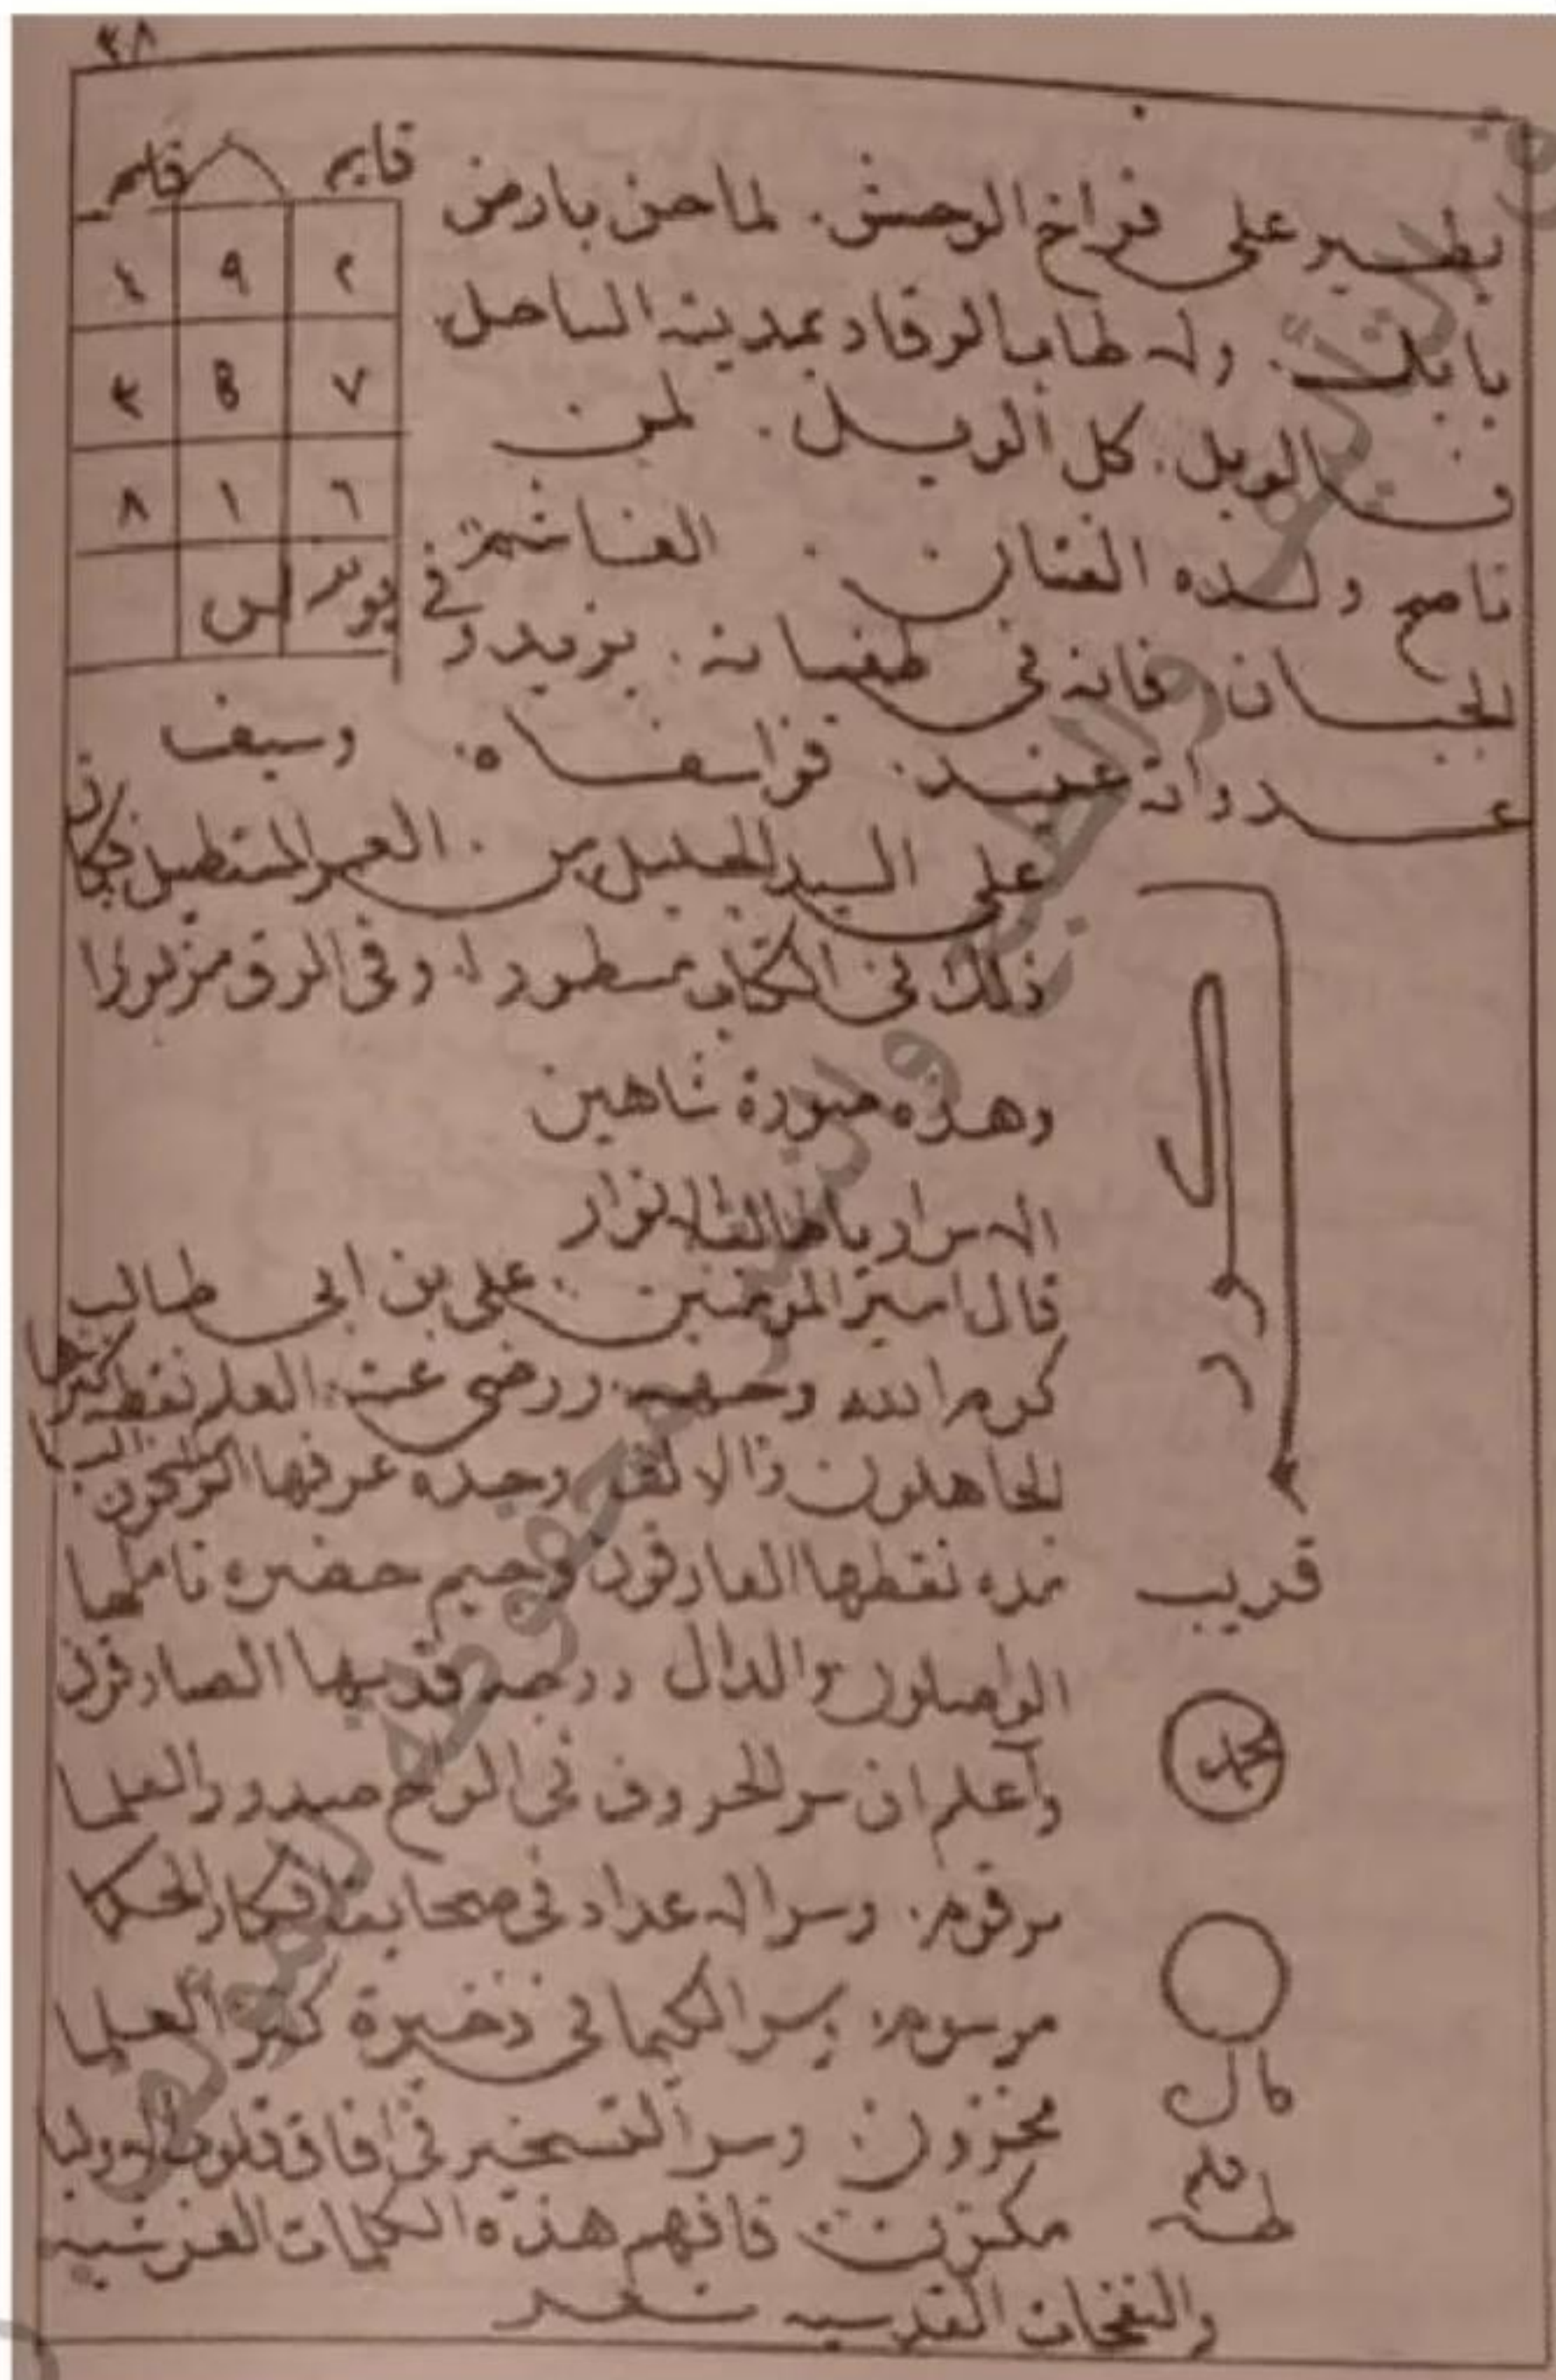 ٣٨
قايم قايم
٢ ٩ ٤
٧ ٥ ٣
٦ ١ ٨
يطير على فراخ الوحش. لما حن بارض
بابك. ولا طاب الرقاد بمدينة الساحل
فالويل. كل الويل. لمن
ناصح ولده الفتان. الغاشم
الجبان فانه في طغيانه. يزيد وفي
عدوانه عنيد. فواسفاه. وسيف
على السيد الجليل من. العمر المتطيل فكان
ذلك في الكتاب مسطورا. وفي الرق مزبورا
وهذه صورة شاهين
الاسرار يا طالب الانوار
قال امير المؤمنين علي بن ابي طالب
كرم الله وجهه ورضي عنه. العلم نقطة كثرها
الجاهلون والالف وحده عرفها الراسخون
مده نقطها العارفون وجيم حضره تاملها
الواصلون والدال درجه قدسها الصادقون
وأعلم ان سر الحروف في الوح صدور العلما
مرقوم. وسر الاعداد في صحايف افكار الحكما
مرسوم. وسر الكيما في ذخيرة كنز العلما
مخزون. وسر التسخير في افاق قلوب الاوليا
مكنون فافهم هذه الكلمات العرشيه
والنفخات القدسيه شعر
قريب
محمد
طه